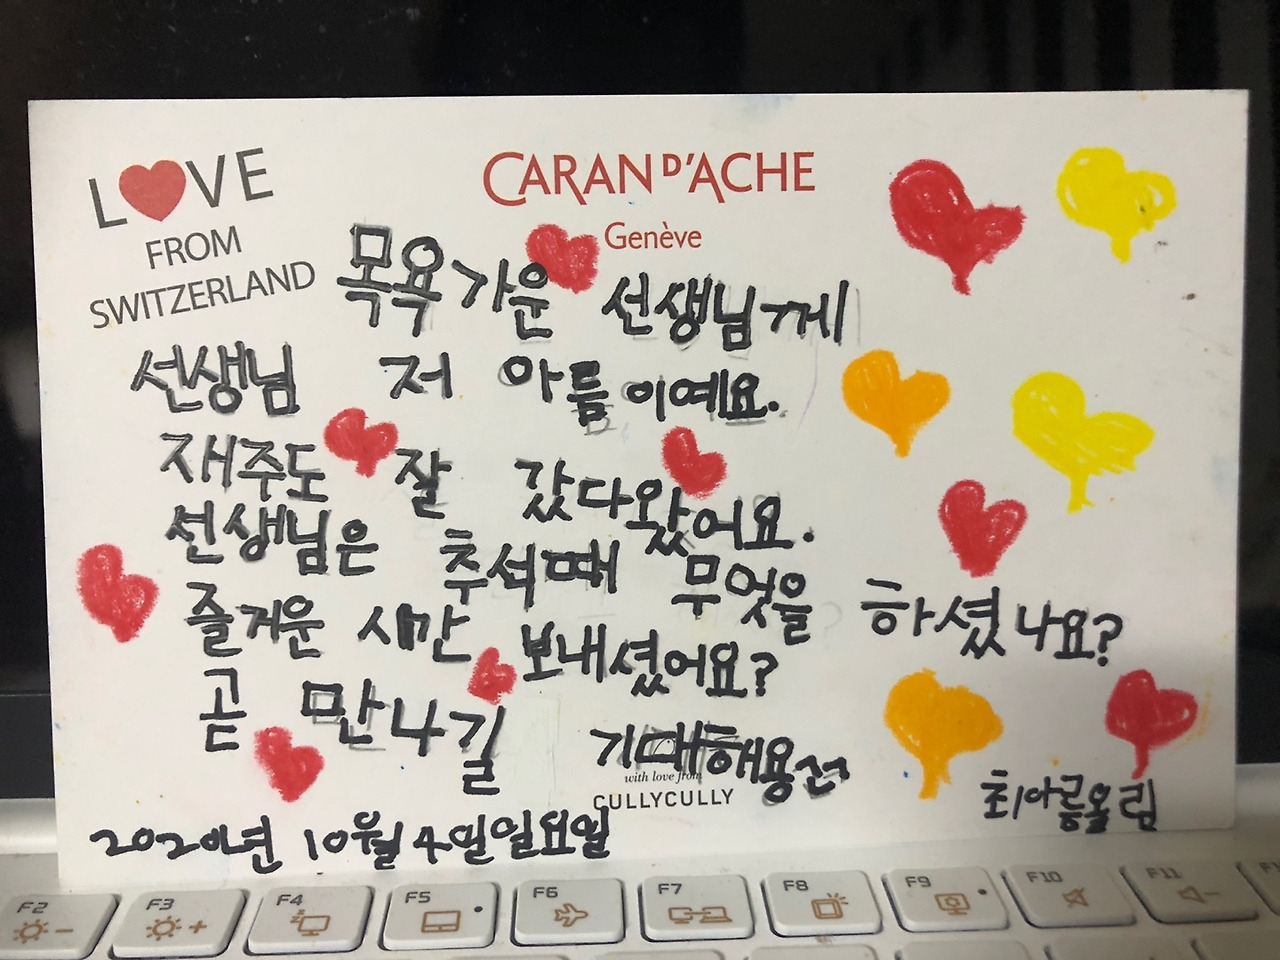 LOVE
FROM
SWITZERLAND
CARAN D'ACHE
Genève
목욕가운 선생님께
선생님 저 아름이예요.
재주도 잘 갔다왔어요.
선생님은 추석때 무엇을 하셨나요?
즐거운 시간 보내셨어요?
곧 만나길 기대해용
with love from
CULLYCULLY
최아름올림
2020년 10월 4일일요일
F2 F3 F4 F5 F6 F7 F8 F9 F10 F11